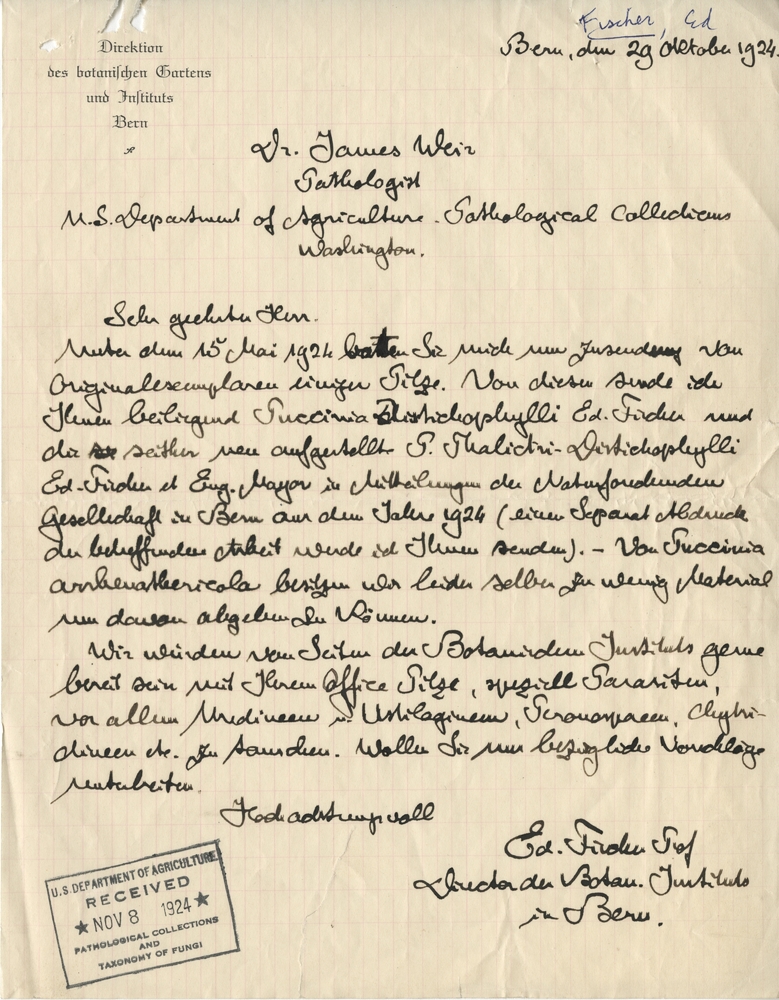 Fischer, Ed
Direktion
des botanischen Gartens
und Instituts
Bern
Bern, den 29 Oktober 1924.
Dr. James Weir
Pathologist
U.S. Department of Agriculture. Pathological Collections
Washington.
Sehr geehrter Herr.
Unter dem 15 Mai 1924 baten Sie mich um Zusendung von
Originalexemplaren einiger Pilze. Von diesen sende ich
Ihnen beiliegend Puccinia Distichophylli Ed. Fischer und
die seither neu aufgestellte P. Thalictri-Distichophylli
Ed. Fischer et Eug. Mayor in Mitteilungen der Naturforschenden
Gesellschaft in Bern aus dem Jahre 1924 (einen Separat Abdruck
der betreffenden Arbeit werde ich Ihnen senden). – Von Puccinia
arrhenathericola besitzen wir leider selber zu wenig Material
um davon abgeben zu können.
Wir würden von Seiten des Botanischen Instituts gerne
bereit sein mit Ihrem Office Pilze, speziell Parasiten,
vor allem Uredineen u. Ustilagineen, Peronosporeen, Chytri-
dineen etc. zu tauschen. Wollen Sie uns bezügliche Vorschläge
unterbreiten.
Hochachtungsvoll
Ed. Fischer Prof
Director des Botan. Instituts
in Bern.
U.S. DEPARTMENT OF AGRICULTURE
RECEIVED
★ NOV 8 1924 ★
PATHOLOGICAL COLLECTIONS
AND
TAXONOMY OF FUNGI